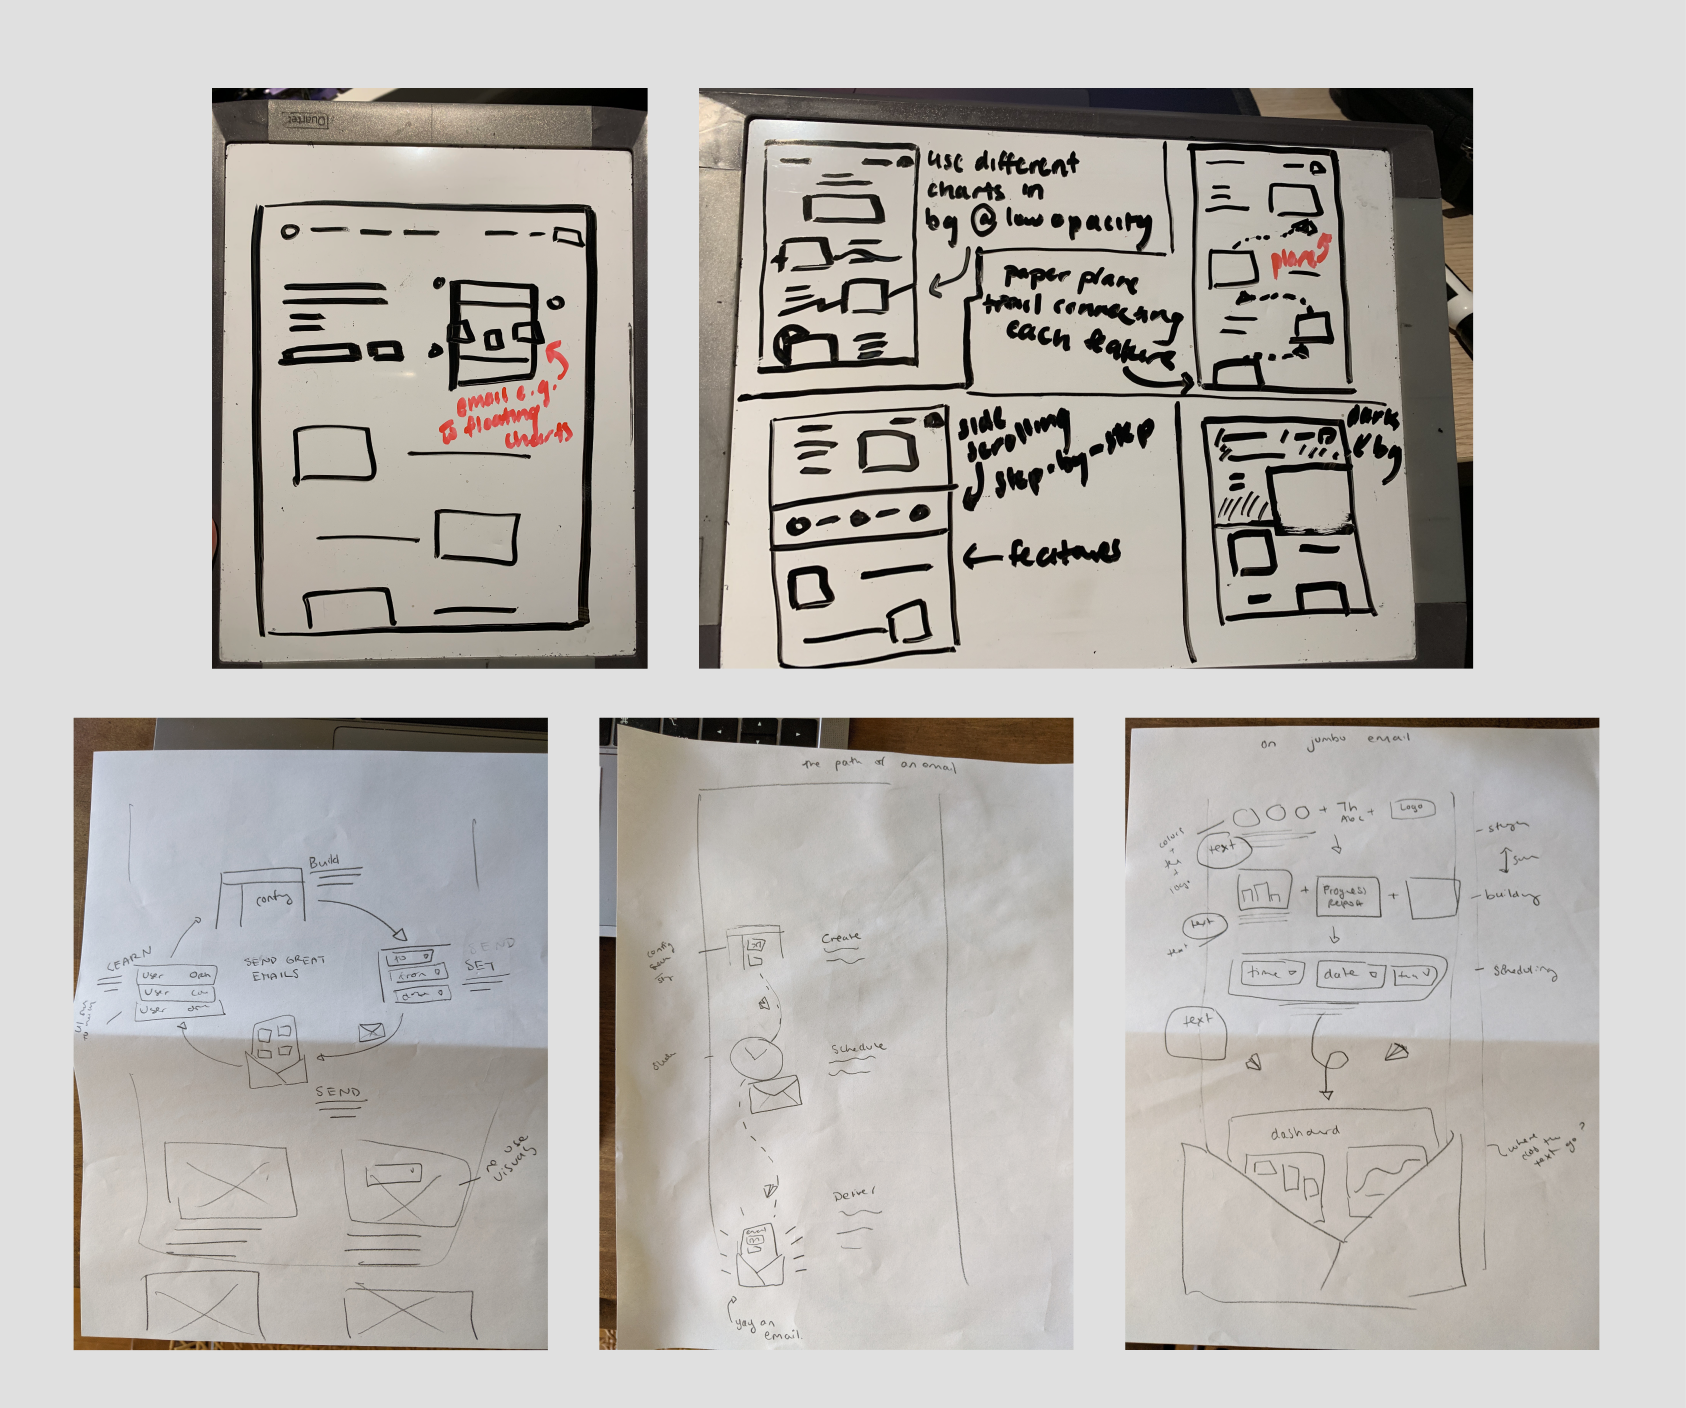 Quartet
email e.g.
to floating
charts
use different
charts in
bg @ low opacity
paper plane
trail connecting
each feature
plane
side
scrolling
step-by-step
features
dark
bg
Build
config
LEARN
SEND GREAT
EMAILS
SEND
SET
User
User
User
SEND
no use
visuals
the path of an email
Create
Schedule
Deliver
email
yay an
email.
on jumbo email
Logo
Abc
colors
+
+
logo
text
styles
Progress
Report
building
text
text
time
date
scheduling
text
dashboard
where
does the
text go?